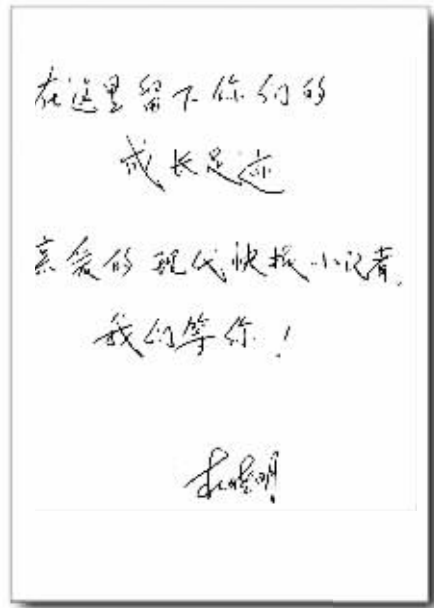 在这里留下你们的
成长足迹
亲爱的现代快报小记者,
我们等你!